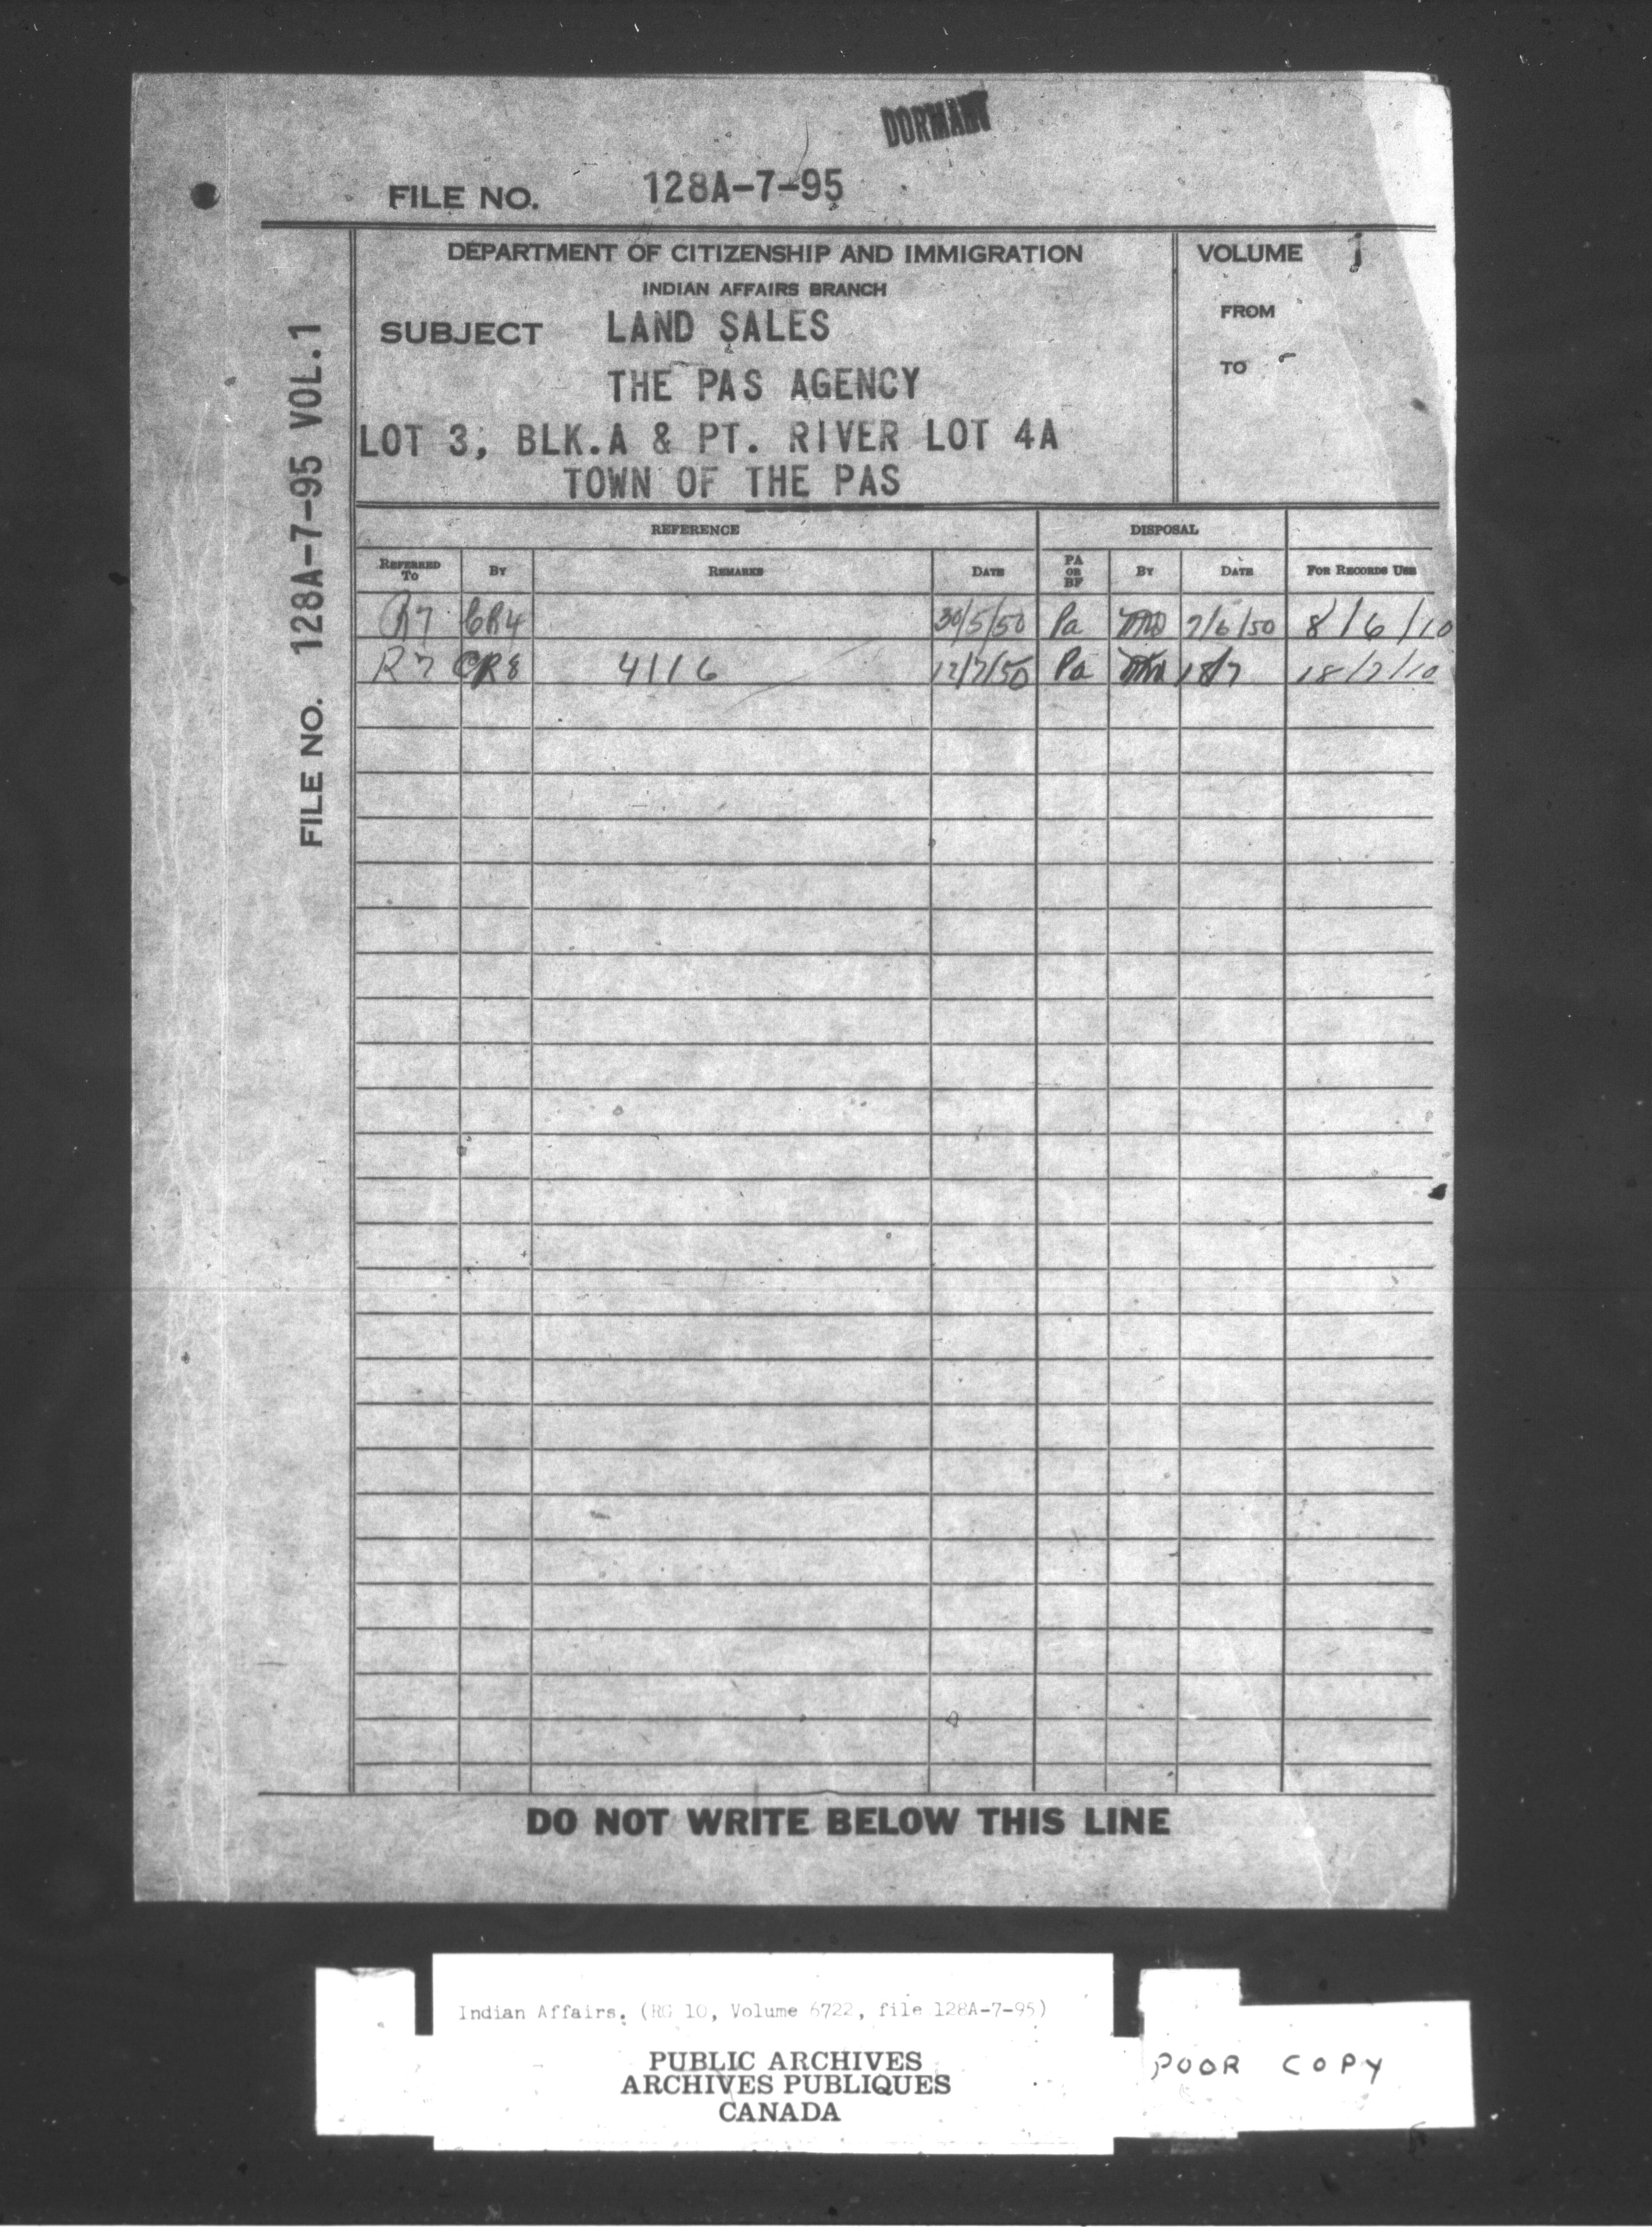 DORMANT
FILE NO. 128A-7-95
DEPARTMENT OF CITIZENSHIP AND IMMIGRATION
INDIAN AFFAIRS BRANCH
SUBJECT LAND SALES
THE PAS AGENCY
LOT 3, BLK.A & PT. RIVER LOT 4A
TOWN OF THE PAS
VOLUME 1
FROM
TO
FILE NO. 128A-7-95 VOL.1
REFERENCE DISPOSAL
REFERRED TO BY REMARKS DATE PA OR BF BY DATE FOR RECORDS USE
R7 CR4 30/5/50 Pa 7/6/50 8/6/10
R7 CR8 4116 12/7/50 Pa 18/7 18/7/10
DO NOT WRITE BELOW THIS LINE
Indian Affairs. (RG 10, Volume 6722, file 128A-7-95)
PUBLIC ARCHIVES
ARCHIVES PUBLIQUES
CANADA
POOR COPY